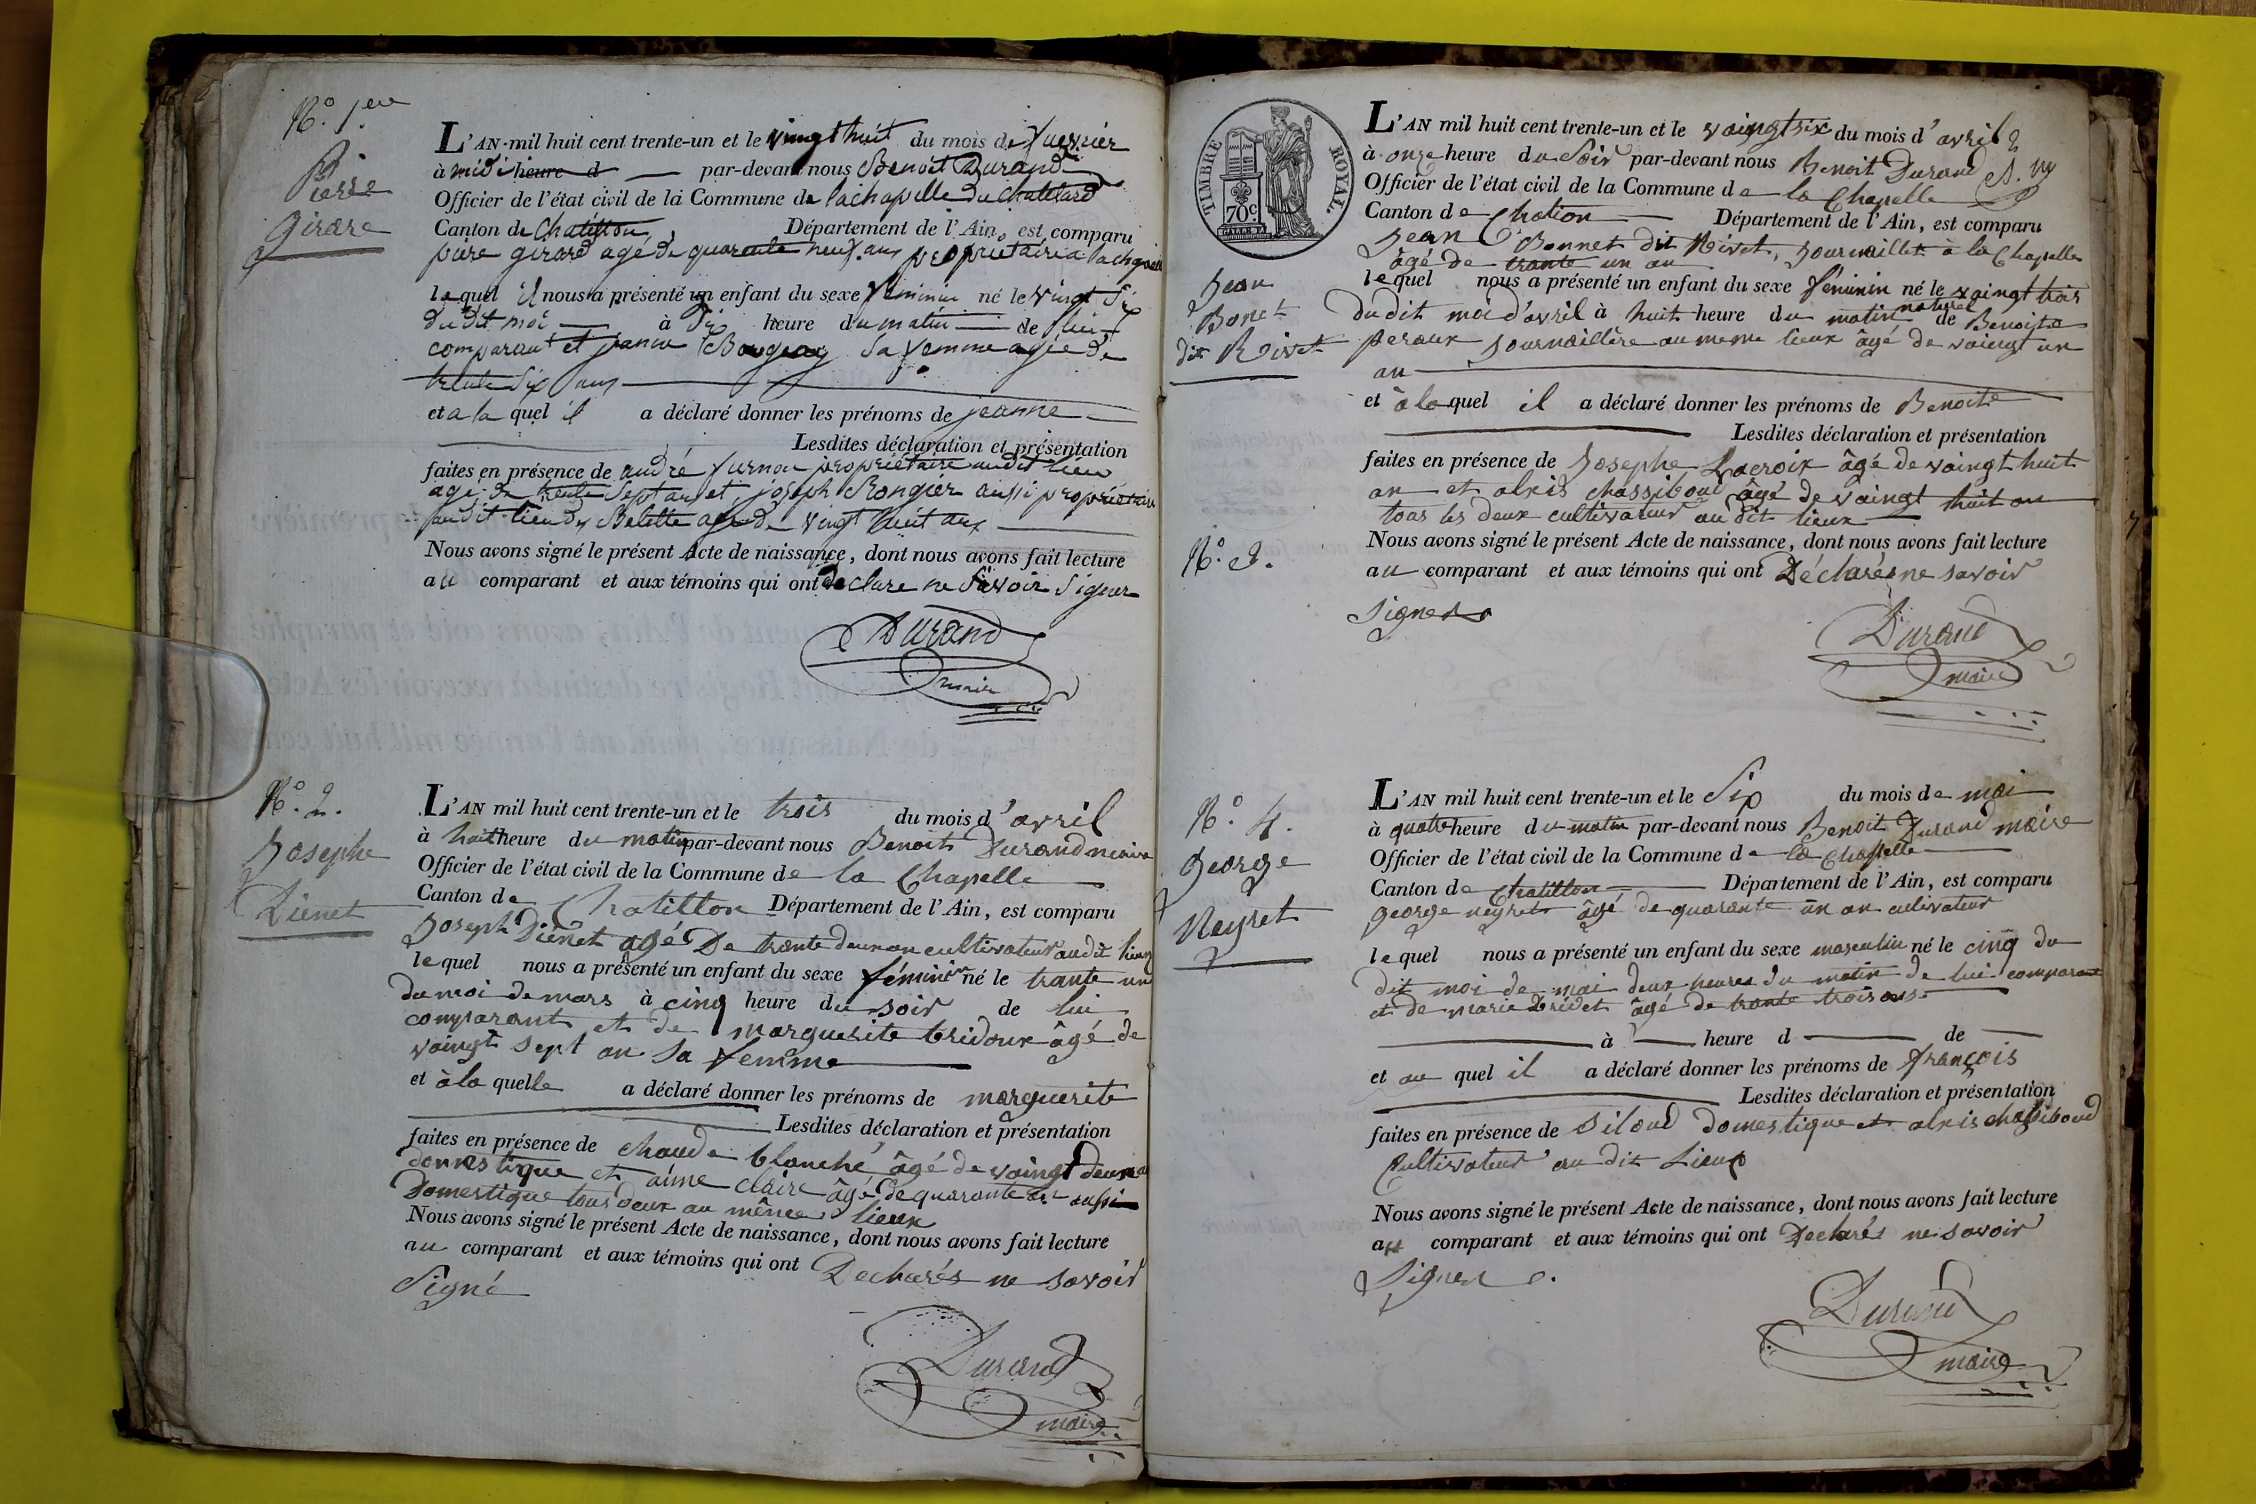 N.º 1.ere
Pierre
Girard
L'AN mil huit cent trente-un et le vingt huit du mois de fuevrier
à midi heure d par-devant nous Benoit Durand
Officier de l'état civil de la Commune de lachapelle du Chatelard
Canton de Chatillon Département de l'Ain, est comparu
piere girard agé de quarante neuf ans propriétaire a lachapelle
lequel il nous a présenté un enfant du sexe feminin né le vingt Six
du dit moi à Six heure du matin de lui
comparant et Sa femme agée de
trente Six ans
et a la quel il a déclaré donner les prénoms de jeanne
Lesdites déclaration et présentation
faites en présence de andré propriétaire audit lieu
agé de trente Sept ans et joseph Rongier aussi propriétaire
audit lieu agé de vingt huit ans
Nous avons signé le présent Acte de naissance, dont nous avons fait lecture
au comparant et aux témoins qui ont declare ne Savoir Signer
Durand
maire
N.º 2.
Josephe
Dienet
L'AN mil huit cent trente-un et le trois du mois d'avril
à huit heure du matin par-devant nous Benoit Durand maire
Officier de l'état civil de la Commune de la Chapelle
Canton de Chatillon Département de l'Ain, est comparu
Joseph Dienet agé De trante deux an cultivateur au dit lieux
lequel nous a présenté un enfant du sexe féminin né le trante un
du moi de mars à cinq heure du soir de lui
comparant et de marguerite bridoux âgé de
vaingt sept an sa femme
et à la quelle a déclaré donner les prénoms de marguerite
Lesdites déclaration et présentation
faites en présence de chaude blanché âgé de vaingt deux an
domestique et aime claire âgé de quarante an aussi
Domestique tous deux au même lieux
Nous avons signé le présent Acte de naissance, dont nous avons fait lecture
au comparant et aux témoins qui ont Declarés ne savoir
Signé
Durand
maire
TIMBRE ROYAL.
70c.
Jean
Bonet
dit Rivet
N.º 3.
L'AN mil huit cent trente-un et le vaingt six du mois d'avril
à onze heure du Soir par-devant nous Benoit Durand
Officier de l'état civil de la Commune de la Chapelle
Canton de Chation Département de l'Ain, est comparu
Jean Bonnet dit Rivet, journaillet à la Chapelle
âgé de trante un an
lequel nous a présenté un enfant du sexe féminin né le vaingt trois
du dit moi d'avril à huit heure du matin naturel de Benoite
peroux journaillère au meme lieux âgé de vaingt un
an
et à la quel il a déclaré donner les prénoms de Benoite
Lesdites déclaration et présentation
faites en présence de Josephe Lacroix âgé de vaingt huit
an et alxis chassiboud âgé de vaingt huit an
tous les deux cultivateur au dit lieux
Nous avons signé le présent Acte de naissance, dont nous avons fait lecture
au comparant et aux témoins qui ont Déclarés ne savoir
signer
Durand
maire
N.º 4.
george
Neyret
L'AN mil huit cent trente-un et le Six du mois de mai
à quatre heure du matin par-devant nous Benoit Durand maire
Officier de l'état civil de la Commune de la Chapelle
Canton de Chatillon Département de l'Ain, est comparu
george neyret âgé de quarante un an cultivateur
lequel nous a présenté un enfant du sexe masculin né le cinq du
dit moi de mai deux heures du matin de lui comparant
et de marie brévet âgé de trante trois ans
à heure d de
et au quel il a déclaré donner les prénoms de françois
Lesdites déclaration et présentation
faites en présence de Siloud domestique et alxis chassiboud
Cultivateur au dit Lieux
Nous avons signé le présent Acte de naissance, dont nous avons fait lecture
au comparant et aux témoins qui ont Declarés ne savoir
Signer
Durand
maire